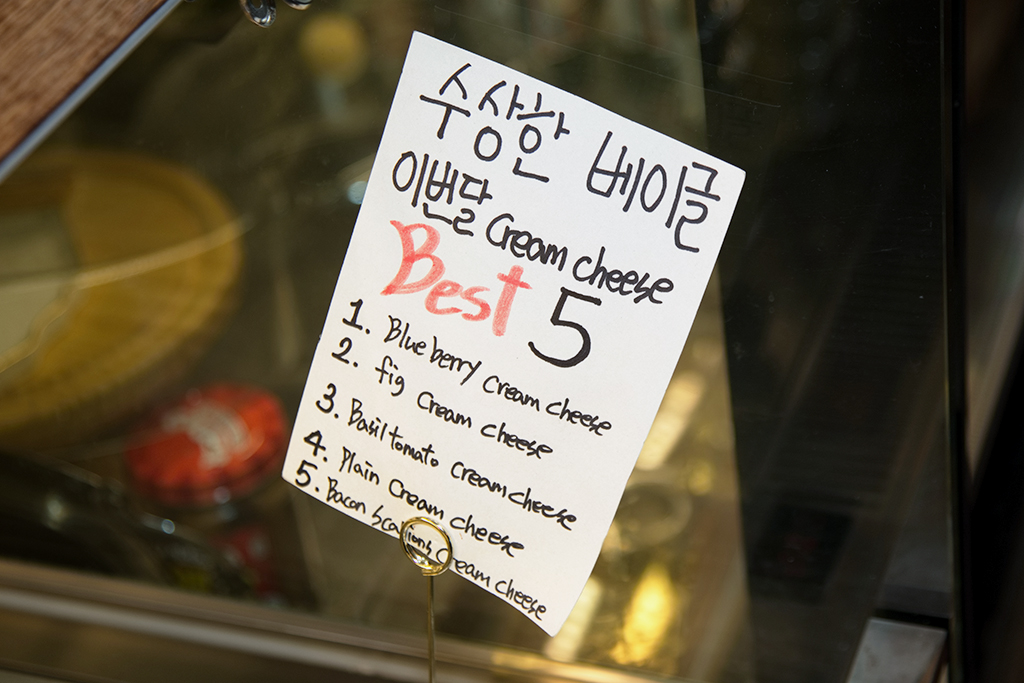 수상한 베이글
이번달 Cream cheese
Best 5
1. Blueberry Cream cheese
2. fig Cream cheese
3. Basil tomato Cream cheese
4. Plain Cream cheese
5. Bacon Scallions Cream cheese